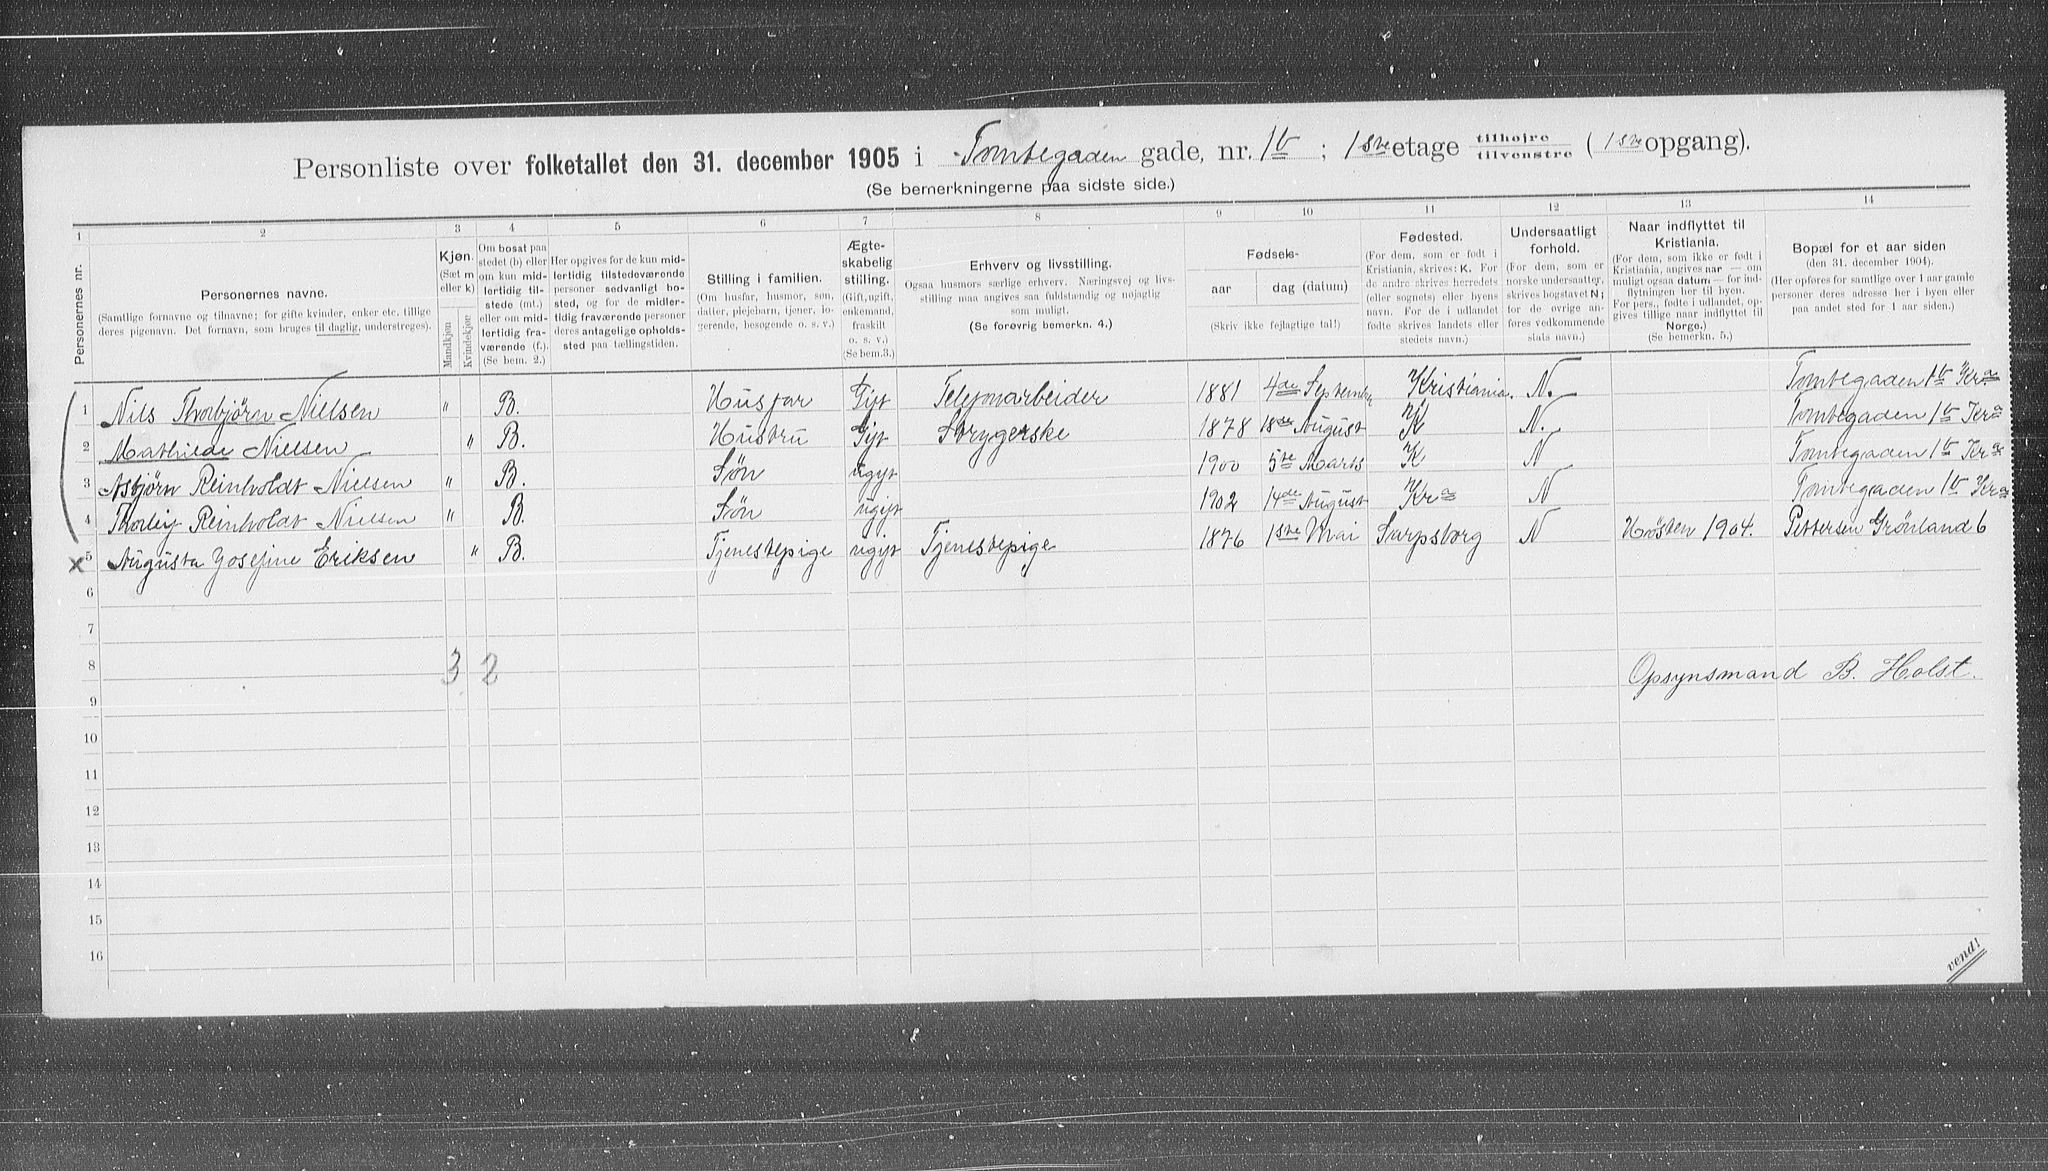 Personliste over folketallet den 31. december 1905 i Tomtegaden gade, nr. 1b ; 1ste etage tilhøjre tilvenstre ( 1ste opgang).
(Se bemerkningerne paa sidste side.)
1 2 3 4 5 6 7 8 9 10 11 12 13 14
Personernes nr.
Personernes navne.
(Samtlige fornavne og tilnavne; for gifte kvinder, enker etc. tillige deres pigenavn. Det fornavn, som bruges til daglig, understreges).
Kjøn.
(Sæt m eller k)
Mandkjøn
Kvindekjøn
Om bosat paa stedet (b) eller om kun midlertidig tilstede (mt.) eller om midlertidig fraværende (f.).
(Se bem. 2.)
Her opgives for de kun midlertidig tilstedeværende personer sedvanligt bosted, og for de midlertidig fraværende personer deres antagelige opholdssted paa tællingstiden.
Stilling i familien.
(Om husfar, husmor, søn, datter, plejebarn, tjener, logerende, besøgende o. s. v.)
Ægteskabelig stilling.
(Gift, ugift, enkemand, fraskilt o. s. v.)
(Se bem.3.)
Erhverv og livsstilling.
Ogsaa husmors særlige erhverv. Næringsvej og livsstilling maa angives saa fuldstændig og nøjagtig som muligt.
(Se forøvrig bemerkn. 4.)
Fødsels-
aar
dag (datum)
(Skriv ikke fejlagtige tal!)
Fødested.
(For dem, som er født i Kristiania, skrives: K. For de andre skrives herredets (eller sognets) eller byens navn. For de i udlandet fødte skrives landets eller stedets navn.)
Undersaatligt forhold.
(For dem, som er norske undersaatter, skrives bogstavet N; for de øvrige anføres vedkommende stats navn.)
Naar indflyttet til Kristiania.
(For dem, som ikke er født i Kristiania, angives aar — om muligt ogsaa datum — for indflytningen her til byen. For pers., fødte i udlandet, opgives tillige naar indflyttet til Norge.)
(Se bemerkn. 5.)
Bopæl for et aar siden
(den 31. december 1904).
(Her opføres for samtlige over 1 aar gamle personer deres adresse her i byen eller paa andet sted for 1 aar siden.)
1 Nils Thorbjørn Nielsen " B. Husfar Gift Telefonarbeider 1881 4de September Kristiania. N. Tomtegaden 1b Kra
2 Mathilde Nielsen " B. Hustru Gift Strygerske 1878 18de August K N. Tomtegaden 1b Kra
3 Asbjørn Reinholdt Nielsen " B. Søn ugift 1900 5te Marts K N Tomtegaden 1b Kra
4 Thorleif Reinholdt Nielsen " B. Søn ugift 1902 14de August Kra N Tomtegaden 1b Kra
x 5 Augusta Josefine Eriksen " B. Tjenestepige ugift Tjenestepige 1876 1ste Mai Sarpsborg N Høsten 1904. Pettersen Grønland 6
6
7
8 3 2 Opsynsmand B. Holst.
9
10
11
12
13
14
15
16
vend!